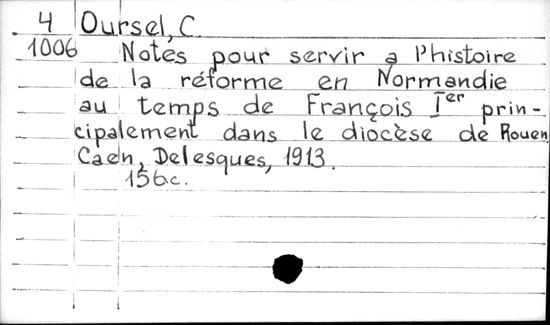 4 Oursel, C.
1006 Notes pour servir a l'histoire
de la réforme en Normandie
au temps de François Ier prin-
cipalement dans le diocèse de Rouen
Caen, Delesques, 1913.
156c.